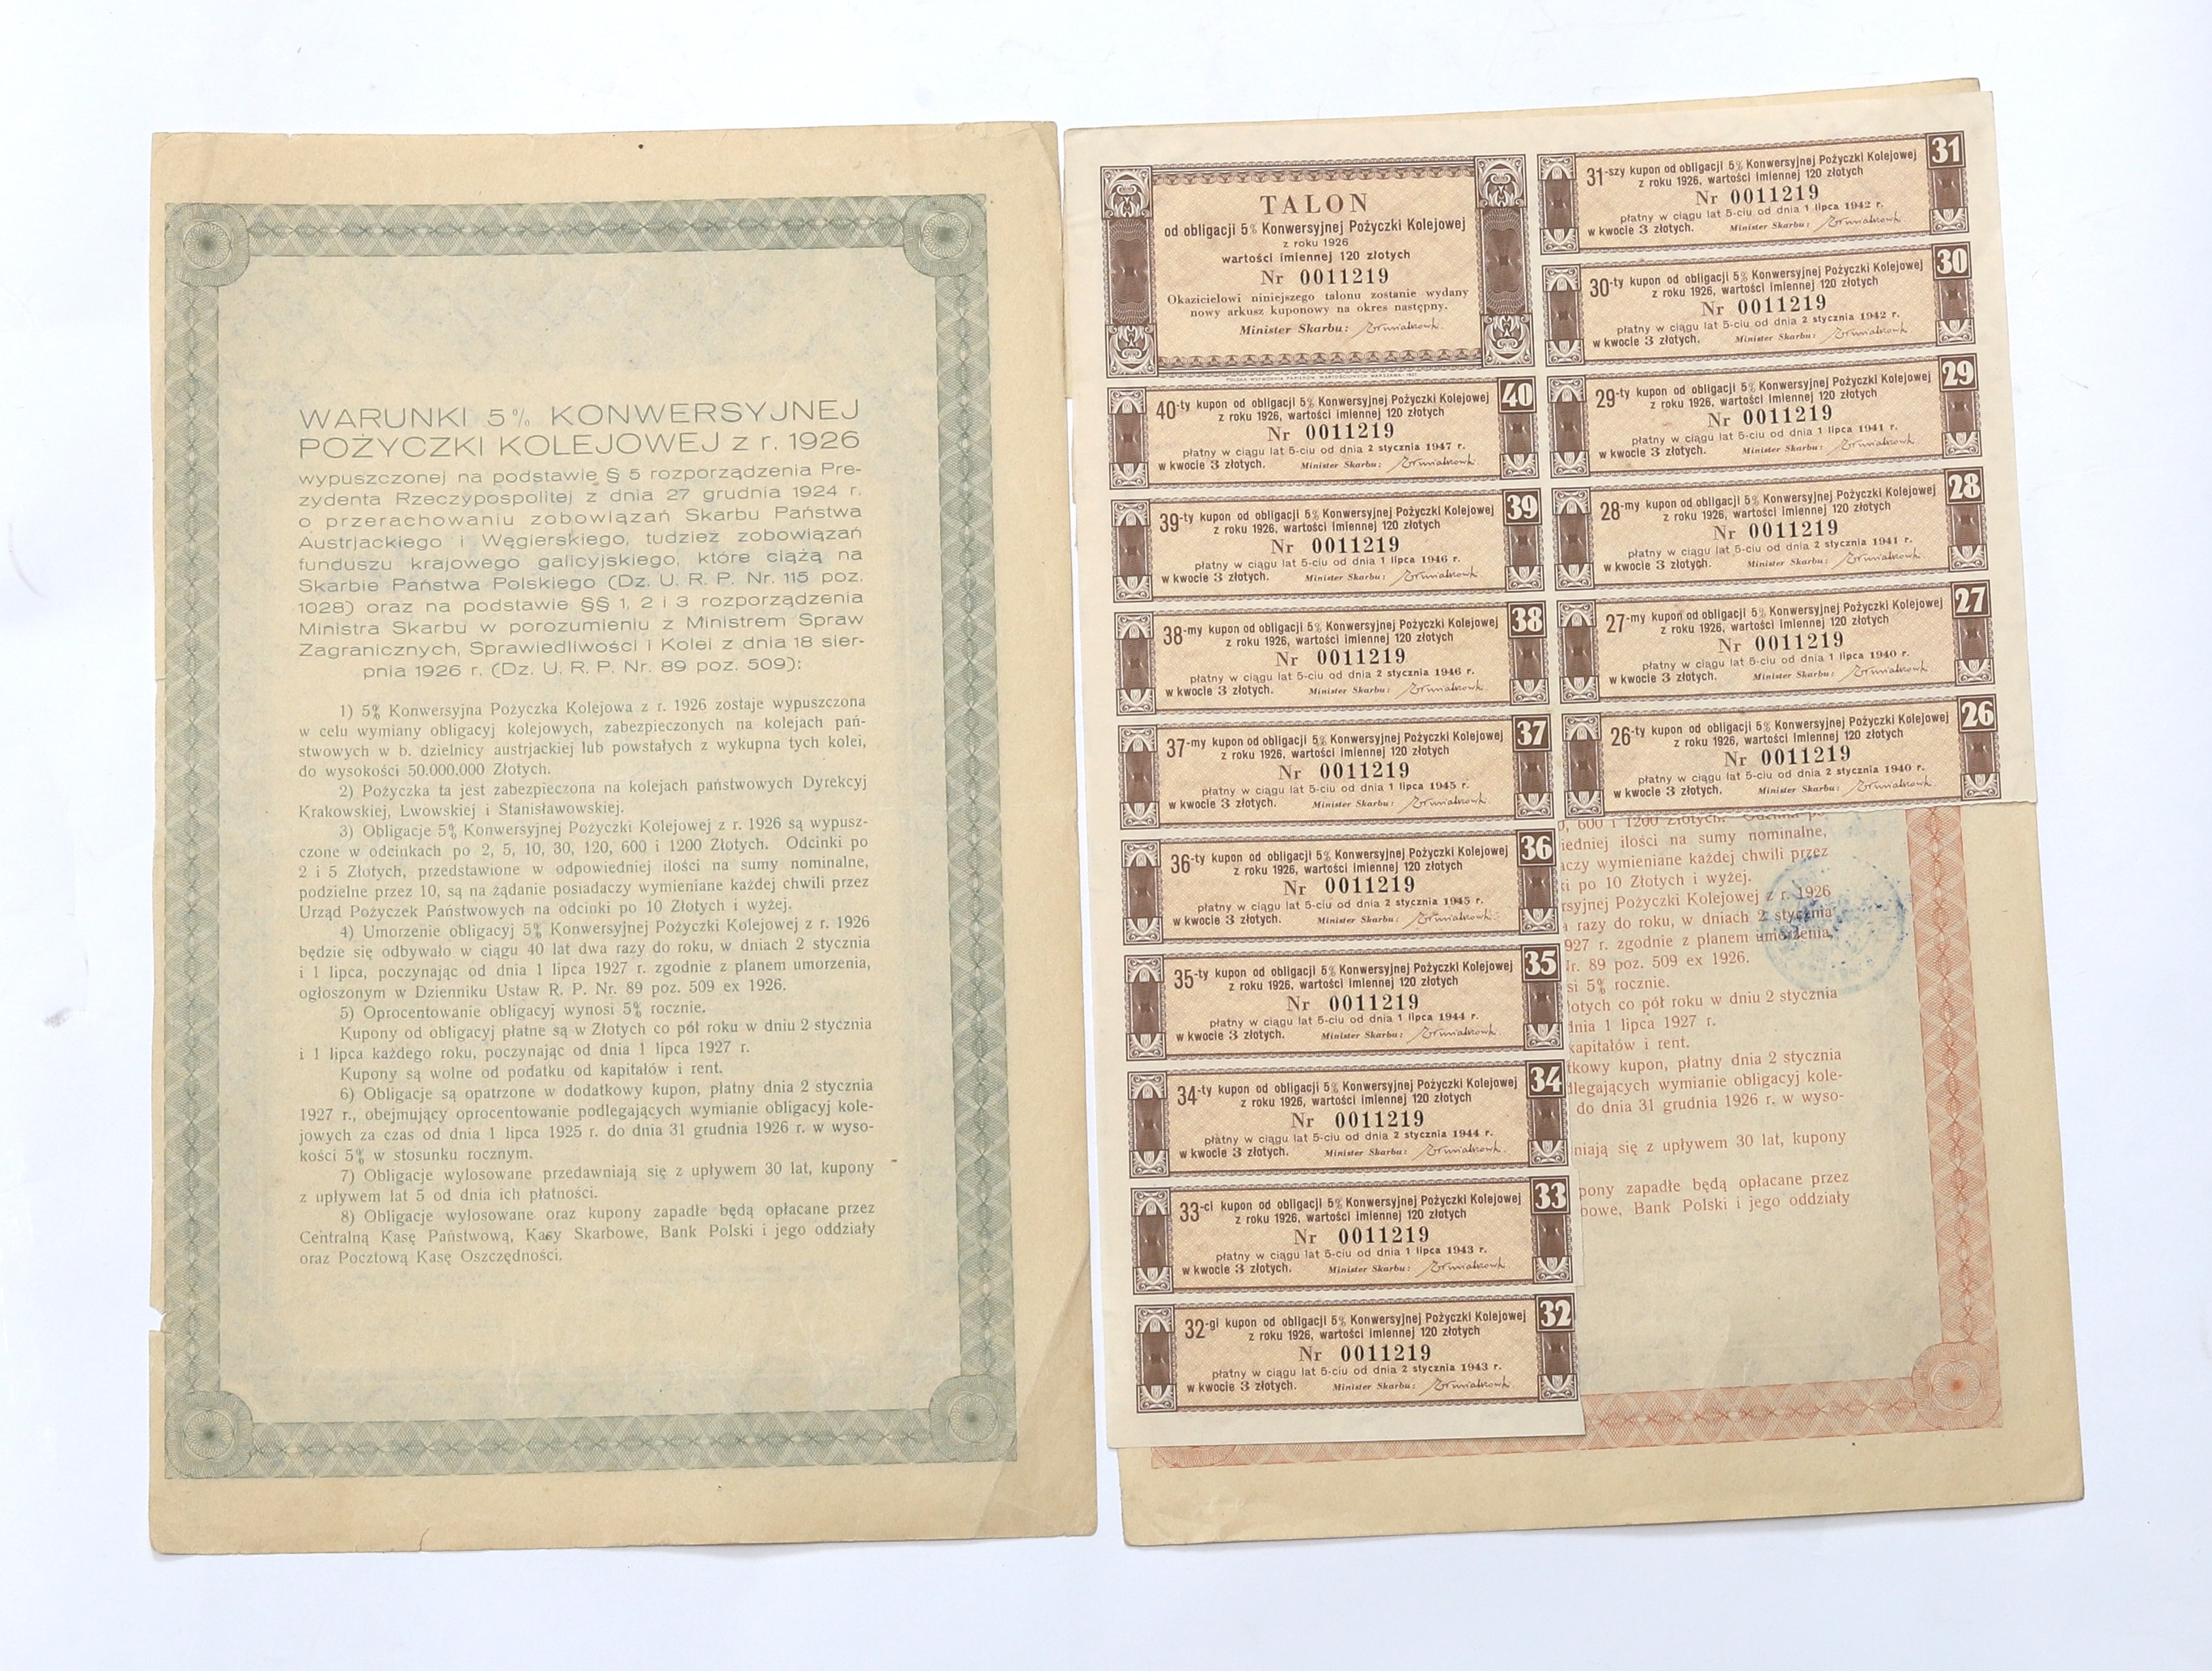 WARUNKI 5% KONWERSYJNEJ
POŻYCZKI KOLEJOWEJ z r. 1926
wypuszczonej na podstawie § 5 rozporządzenia Pre-
zydenta Rzeczypospolitej z dnia 27 grudnia 1924 r.
o przerachowaniu zobowiązań Skarbu Państwa
Austrjackiego i Węgierskiego, tudzież zobowiązań
funduszu krajowego galicyjskiego, które ciążą na
Skarbie Państwa Polskiego (Dz. U. R. P. Nr. 115 poz.
1028) oraz na podstawie §§ 1, 2 i 3 rozporządzenia
Ministra Skarbu w porozumieniu z Ministrem Spraw
Zagranicznych, Sprawiedliwości i Kolei z dnia 18 sier-
pnia 1926 r. (Dz. U. R. P. Nr. 89 poz. 509):
1) 5% Konwersyjna Pożyczka Kolejowa z r. 1926 zostaje wypuszczona
w celu wymiany obligacyj kolejowych, zabezpieczonych na kolejach pań-
stwowych w b. dzielnicy austrjackiej lub powstałych z wykupna tych kolei,
do wysokości 50.000.000 Złotych.
2) Pożyczka ta jest zabezpieczona na kolejach państwowych Dyrekcyj
Krakowskiej, Lwowskiej i Stanisławowskiej.
3) Obligacje 5% Konwersyjnej Pożyczki Kolejowej z r. 1926 są wypusz-
czone w odcinkach po 2, 5, 10, 30, 120, 600 i 1200 Złotych. Odcinki po
2 i 5 Złotych, przedstawione w odpowiedniej ilości na sumy nominalne,
podzielne przez 10, są na żądanie posiadaczy wymieniane każdej chwili przez
Urząd Pożyczek Państwowych na odcinki po 10 Złotych i wyżej.
4) Umorzenie obligacyj 5% Konwersyjnej Pożyczki Kolejowej z r. 1926
będzie się odbywało w ciągu 40 lat dwa razy do roku, w dniach 2 stycznia
i 1 lipca, poczynając od dnia 1 lipca 1927 r. zgodnie z planem umorzenia,
ogłoszonym w Dzienniku Ustaw R. P. Nr. 89 poz. 509 ex 1926.
5) Oprocentowanie obligacyj wynosi 5% rocznie.
Kupony od obligacyj płatne są w Złotych co pół roku w dniu 2 stycznia
i 1 lipca każdego roku, poczynając od dnia 1 lipca 1927 r.
Kupony są wolne od podatku od kapitałów i rent.
6) Obligacje są opatrzone w dodatkowy kupon, płatny dnia 2 stycznia
1927 r., obejmujący oprocentowanie podlegających wymianie obligacyj kole-
jowych za czas od dnia 1 lipca 1925 r. do dnia 31 grudnia 1926 r. w wyso-
kości 5% w stosunku rocznym.
7) Obligacje wylosowane przedawniają się z upływem 30 lat, kupony
z upływem lat 5 od dnia ich płatności.
8) Obligacje wylosowane oraz kupony zapadłe będą opłacane przez
Centralną Kasę Państwową, Kasy Skarbowe, Bank Polski i jego oddziały
oraz Pocztową Kasę Oszczędności.
TALON
od obligacji 5% Konwersyjnej Pożyczki Kolejowej
z roku 1926
wartości imiennej 120 złotych
Nr 0011219
Okazicielowi niniejszego talonu zostanie wydany
nowy arkusz kuponowy na okres następny.
Minister Skarbu:
POLSKA WYTWÓRNIA PAPIERÓW WARTOŚCIOWYCH WARSZAWA-1927
40
40-ty kupon od obligacji 5% Konwersyjnej Pożyczki Kolejowej
z roku 1926, wartości imiennej 120 złotych
Nr 0011219
płatny w ciągu lat 5-ciu od dnia 2 stycznia 1947 r.
w kwocie 3 złotych. Minister Skarbu:
39
39-ty kupon od obligacji 5% Konwersyjnej Pożyczki Kolejowej
z roku 1926, wartości imiennej 120 złotych
Nr 0011219
płatny w ciągu lat 5-ciu od dnia 1 lipca 1946 r.
w kwocie 3 złotych. Minister Skarbu:
38
38-my kupon od obligacji 5% Konwersyjnej Pożyczki Kolejowej
z roku 1926, wartości imiennej 120 złotych
Nr 0011219
płatny w ciągu lat 5-ciu od dnia 2 stycznia 1946 r.
w kwocie 3 złotych. Minister Skarbu:
37
37-my kupon od obligacji 5% Konwersyjnej Pożyczki Kolejowej
z roku 1926, wartości imiennej 120 złotych
Nr 0011219
płatny w ciągu lat 5-ciu od dnia 1 lipca 1945 r.
w kwocie 3 złotych. Minister Skarbu:
36
36-ty kupon od obligacji 5% Konwersyjnej Pożyczki Kolejowej
z roku 1926, wartości imiennej 120 złotych
Nr 0011219
płatny w ciągu lat 5-ciu od dnia 2 stycznia 1945 r.
w kwocie 3 złotych. Minister Skarbu:
35
35-ty kupon od obligacji 5% Konwersyjnej Pożyczki Kolejowej
z roku 1926, wartości imiennej 120 złotych
Nr 0011219
płatny w ciągu lat 5-ciu od dnia 1 lipca 1944 r.
w kwocie 3 złotych. Minister Skarbu:
34
34-ty kupon od obligacji 5% Konwersyjnej Pożyczki Kolejowej
z roku 1926, wartości imiennej 120 złotych
Nr 0011219
płatny w ciągu lat 5-ciu od dnia 2 stycznia 1944 r.
w kwocie 3 złotych. Minister Skarbu:
33
33-ci kupon od obligacji 5% Konwersyjnej Pożyczki Kolejowej
z roku 1926, wartości imiennej 120 złotych
Nr 0011219
płatny w ciągu lat 5-ciu od dnia 1 lipca 1943 r.
w kwocie 3 złotych. Minister Skarbu:
32
32-gi kupon od obligacji 5% Konwersyjnej Pożyczki Kolejowej
z roku 1926, wartości imiennej 120 złotych
Nr 0011219
płatny w ciągu lat 5-ciu od dnia 2 stycznia 1943 r.
w kwocie 3 złotych. Minister Skarbu:
31
31-szy kupon od obligacji 5% Konwersyjnej Pożyczki Kolejowej
z roku 1926, wartości imiennej 120 złotych
Nr 0011219
płatny w ciągu lat 5-ciu od dnia 1 lipca 1942 r.
w kwocie 3 złotych. Minister Skarbu:
30
30-ty kupon od obligacji 5% Konwersyjnej Pożyczki Kolejowej
z roku 1926, wartości imiennej 120 złotych
Nr 0011219
płatny w ciągu lat 5-ciu od dnia 2 stycznia 1942 r.
w kwocie 3 złotych. Minister Skarbu:
29
29-ty kupon od obligacji 5% Konwersyjnej Pożyczki Kolejowej
z roku 1926, wartości imiennej 120 złotych
Nr 0011219
płatny w ciągu lat 5-ciu od dnia 1 lipca 1941 r.
w kwocie 3 złotych. Minister Skarbu:
28
28-my kupon od obligacji 5% Konwersyjnej Pożyczki Kolejowej
z roku 1926, wartości imiennej 120 złotych
Nr 0011219
płatny w ciągu lat 5-ciu od dnia 2 stycznia 1941 r.
w kwocie 3 złotych. Minister Skarbu:
27
27-my kupon od obligacji 5% Konwersyjnej Pożyczki Kolejowej
z roku 1926, wartości imiennej 120 złotych
Nr 0011219
płatny w ciągu lat 5-ciu od dnia 1 lipca 1940 r.
w kwocie 3 złotych. Minister Skarbu:
26
26-ty kupon od obligacji 5% Konwersyjnej Pożyczki Kolejowej
z roku 1926, wartości imiennej 120 złotych
Nr 0011219
płatny w ciągu lat 5-ciu od dnia 2 stycznia 1940 r.
w kwocie 3 złotych. Minister Skarbu:
600 i 1200 Złotych. Odcinki po
iedniej ilości na sumy nominalne,
aczy wymieniane każdej chwili przez
i po 10 Złotych i wyżej.
rsyjnej Pożyczki Kolejowej z r. 1926
razy do roku, w dniach 2 stycznia
927 r. zgodnie z planem umorzenia,
Nr. 89 poz. 509 ex 1926.
si 5% rocznie.
łotych co pół roku w dniu 2 stycznia
dnia 1 lipca 1927 r.
kapitałów i rent.
tkowy kupon, płatny dnia 2 stycznia
dlegających wymianie obligacyj kole-
do dnia 31 grudnia 1926 r. w wyso-
niają się z upływem 30 lat, kupony
pony zapadłe będą opłacane przez
bowe, Bank Polski i jego oddziały